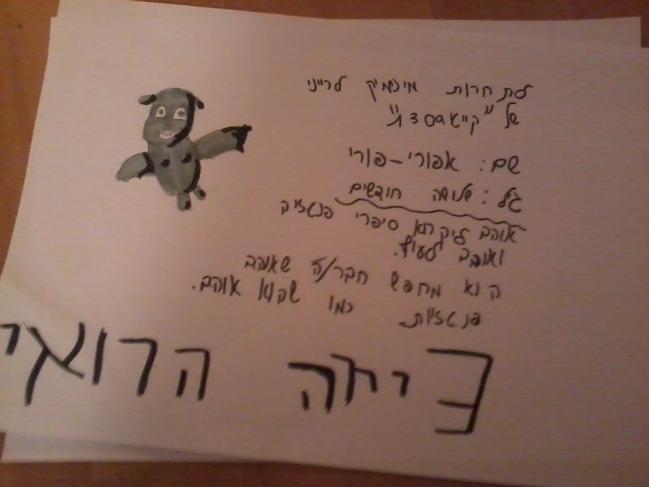 לתחרות מיכמיק לרייני
של "קייטפסדג"
שם: אפורי-פורי
גיל: שלושה חודשים
אוהב ליקרוא סיפרי פנטזיה
ואוהב לעוף.
הוא מחפש חבר/ה שאוהב
פנטזיות כמו שהוא אוהב.
הרואי